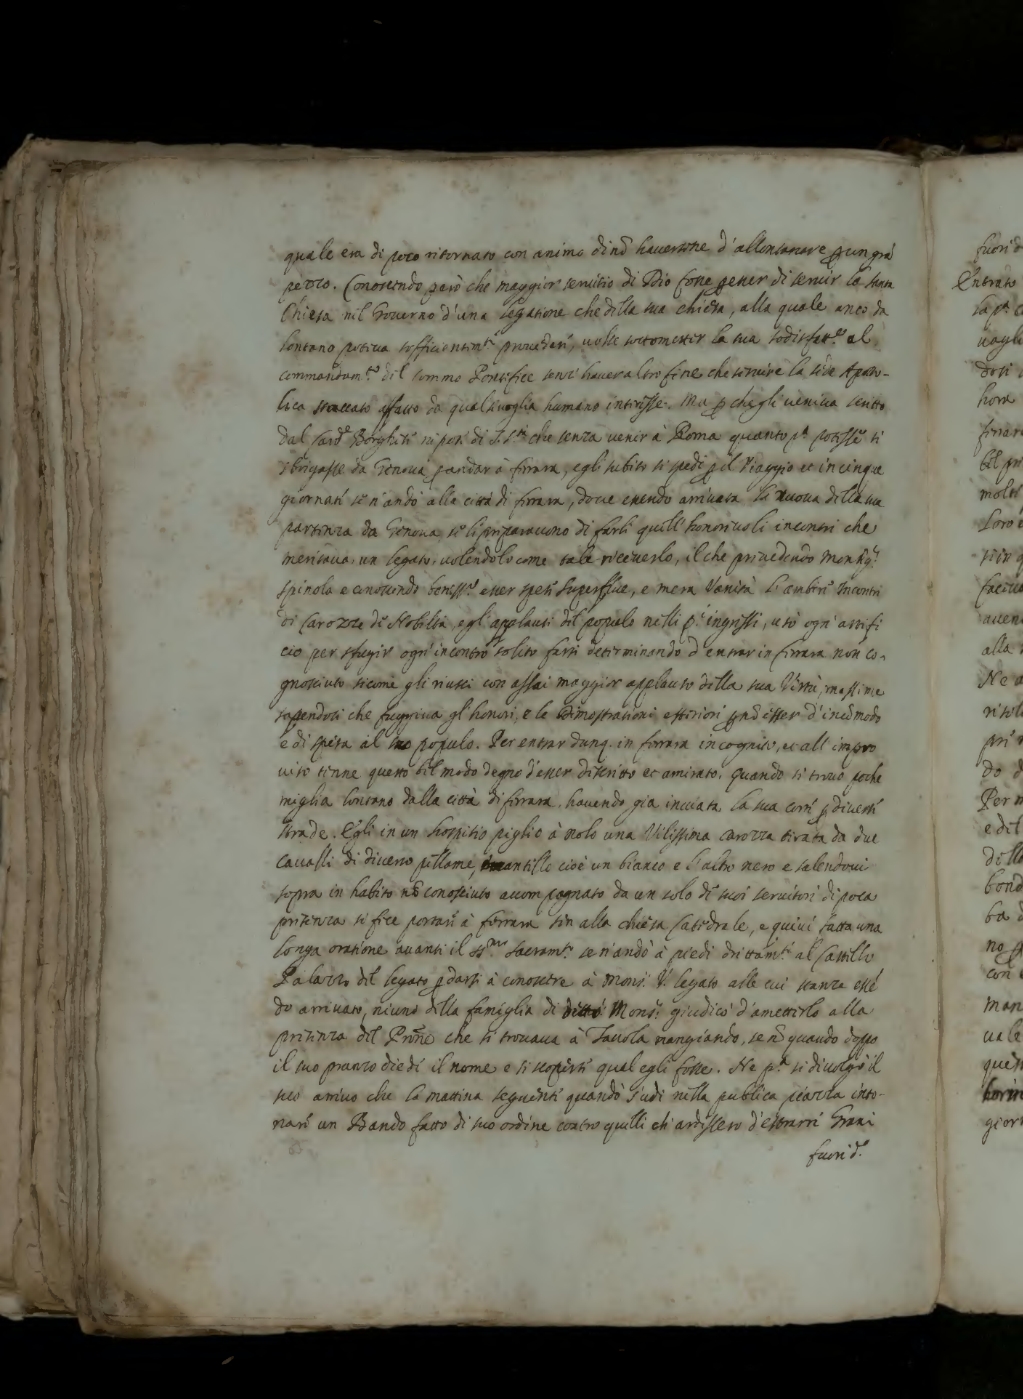 quale era di poco ritornato con animo di nõ haversene d'allontanare p un grã
pezzo. Conoscendo però che maggior servitio di Dio fosse p esser di servir la santa
Chiesa nel Governo d'una legatione che della sua chiesa, alla quale anco da
lontano poteva sofficientemte provedere, volse sottometter la sua sodisfatne al
commandamto del sommo Pontefice senz'haver altro fine che servire la sede Aposto-
lica staccato affatto da qualsivoglia humano interesse. Ma p che gli veniva scritto
dal Card Borghese nipote di S. Stà che senza venir à Roma quanto pa potesse si
sbrigasse da Genova p andar à ferrara, egli subito si spedì p il Viaggio et in cinque
giornate se n'andò alla città di ferrara, dove essendo arrivata la nuova della sua
partenza da Genova, se li preparavono di farli quell'honorevoli incontri che
meritava un legato, volendolo come tale ricevere, il che prevedendo Mons
spinola e conoscendo beniss.o esser spese superflue, e mera Vanità l'ambire Incontri
di Carozze de Nobiltà, e gl'applausi del popolo nelli p.i ingressi, usò ogn'artifi
cio per sfugir ogn'incontro solito farsi determinando d'entrar in ferrara non co-
gnosciuto sicome gli riuscì con assai maggior applauso della sua Virtù, massime
sapendosi che fuggiva gl'honori, e le dimostrationi esteriori p nõ esser d'incõmodo
e di spesa al suo popolo. Per entrar dunq. in ferrara incognito, et all'impro
viso tenne questo bel modo degno d'esser descritto et amirato. Quando si trovò poche
miglia lontano dalla città di ferrara, havendo gia inviata la sua corte p diverse
strade. Egli in un hospitio pigliò à nolo una Vilissima carozza tirata da due
cavalli di diverso pellame, cioè un bianco e l'altro nero e salendovi
sopra in habito nõ conosciuto accompagnato da un solo de suoi servitori di poca
presenza si fece portare à ferrara sin alla chiesa Catedrale, e quivi fatta una
longa oratione avanti il SSmo Sacramto se n'andò à piedi drittamte al Castello
Palazzo del legato p darsi à conoscere à Mons. V. legato alle cui stanze essẽ
do arrivato, niuno della famiglia di detto Mons.r giudicò d'ametterlo alla
presenza del Prone che si trovava à Tavola mangiando, se nõ quando doppo
il suo pranzo diede il nome e si scoperse qual egli fosse. Ne pa si divolgò il
suo arrivo che la mattina seguente quando s'udì nella publica piazza into-
nare un Bando fatto di suo ordine contro quelli ch'ardissero d'estrarre Grani
fuori d.
fuori d
Entrato
hora
ferrar
Il pr
molt
Loro
alla
Ne a
risol
pri
do d
Per m
e del
della
bond
ba d
no p
con
man
vale
quest
giorn